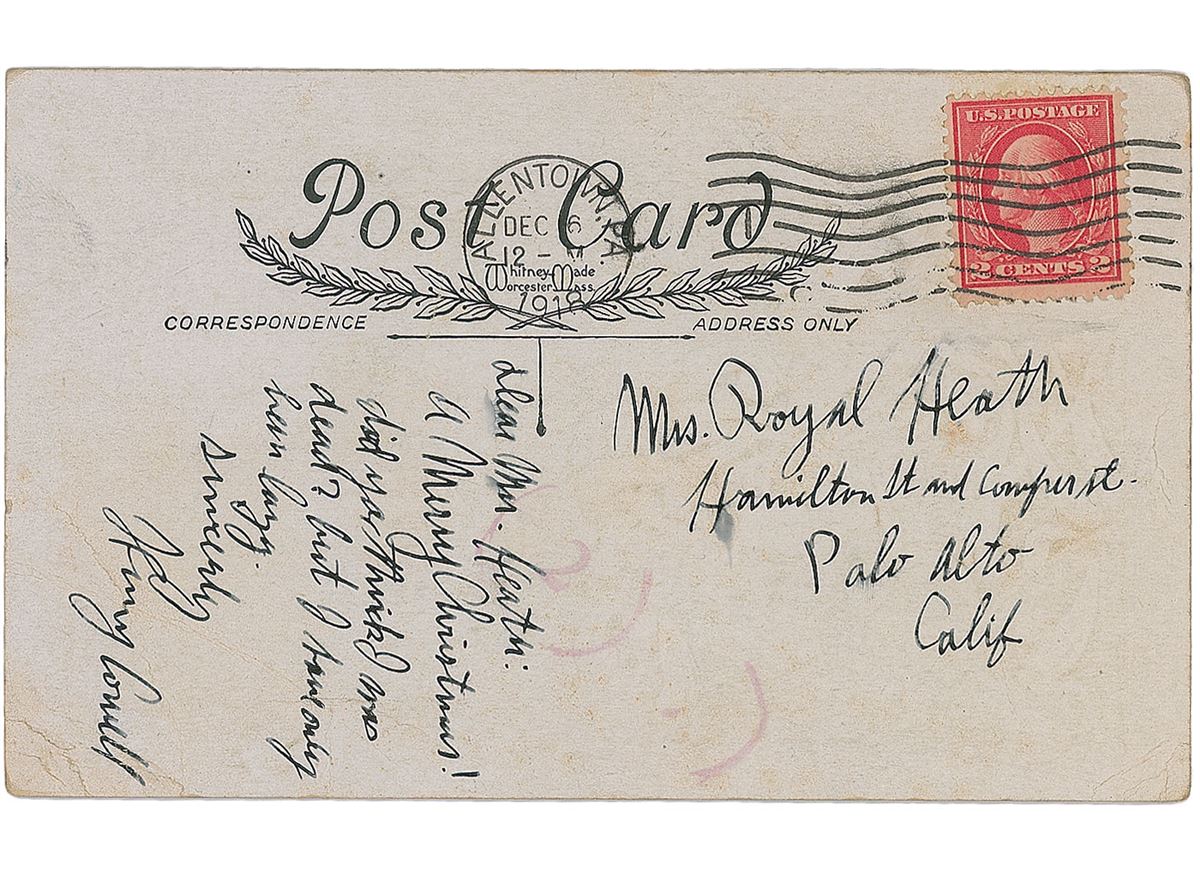 Post Card
ALLENTOWN, PA
DEC 6
12 - M
1918
Whitney Made
Worcester Mass.
U.S. POSTAGE
2 CENTS 2
CORRESPONDENCE
ADDRESS ONLY
Dear Mrs. Heath:
A Merry Christmas!
did you think I was
dead? but I have only
been lazy.
Sincerely
Henry Cowell
Mrs. Royal Heath
Hamilton St and Cowper st.
Palo Alto
Calif